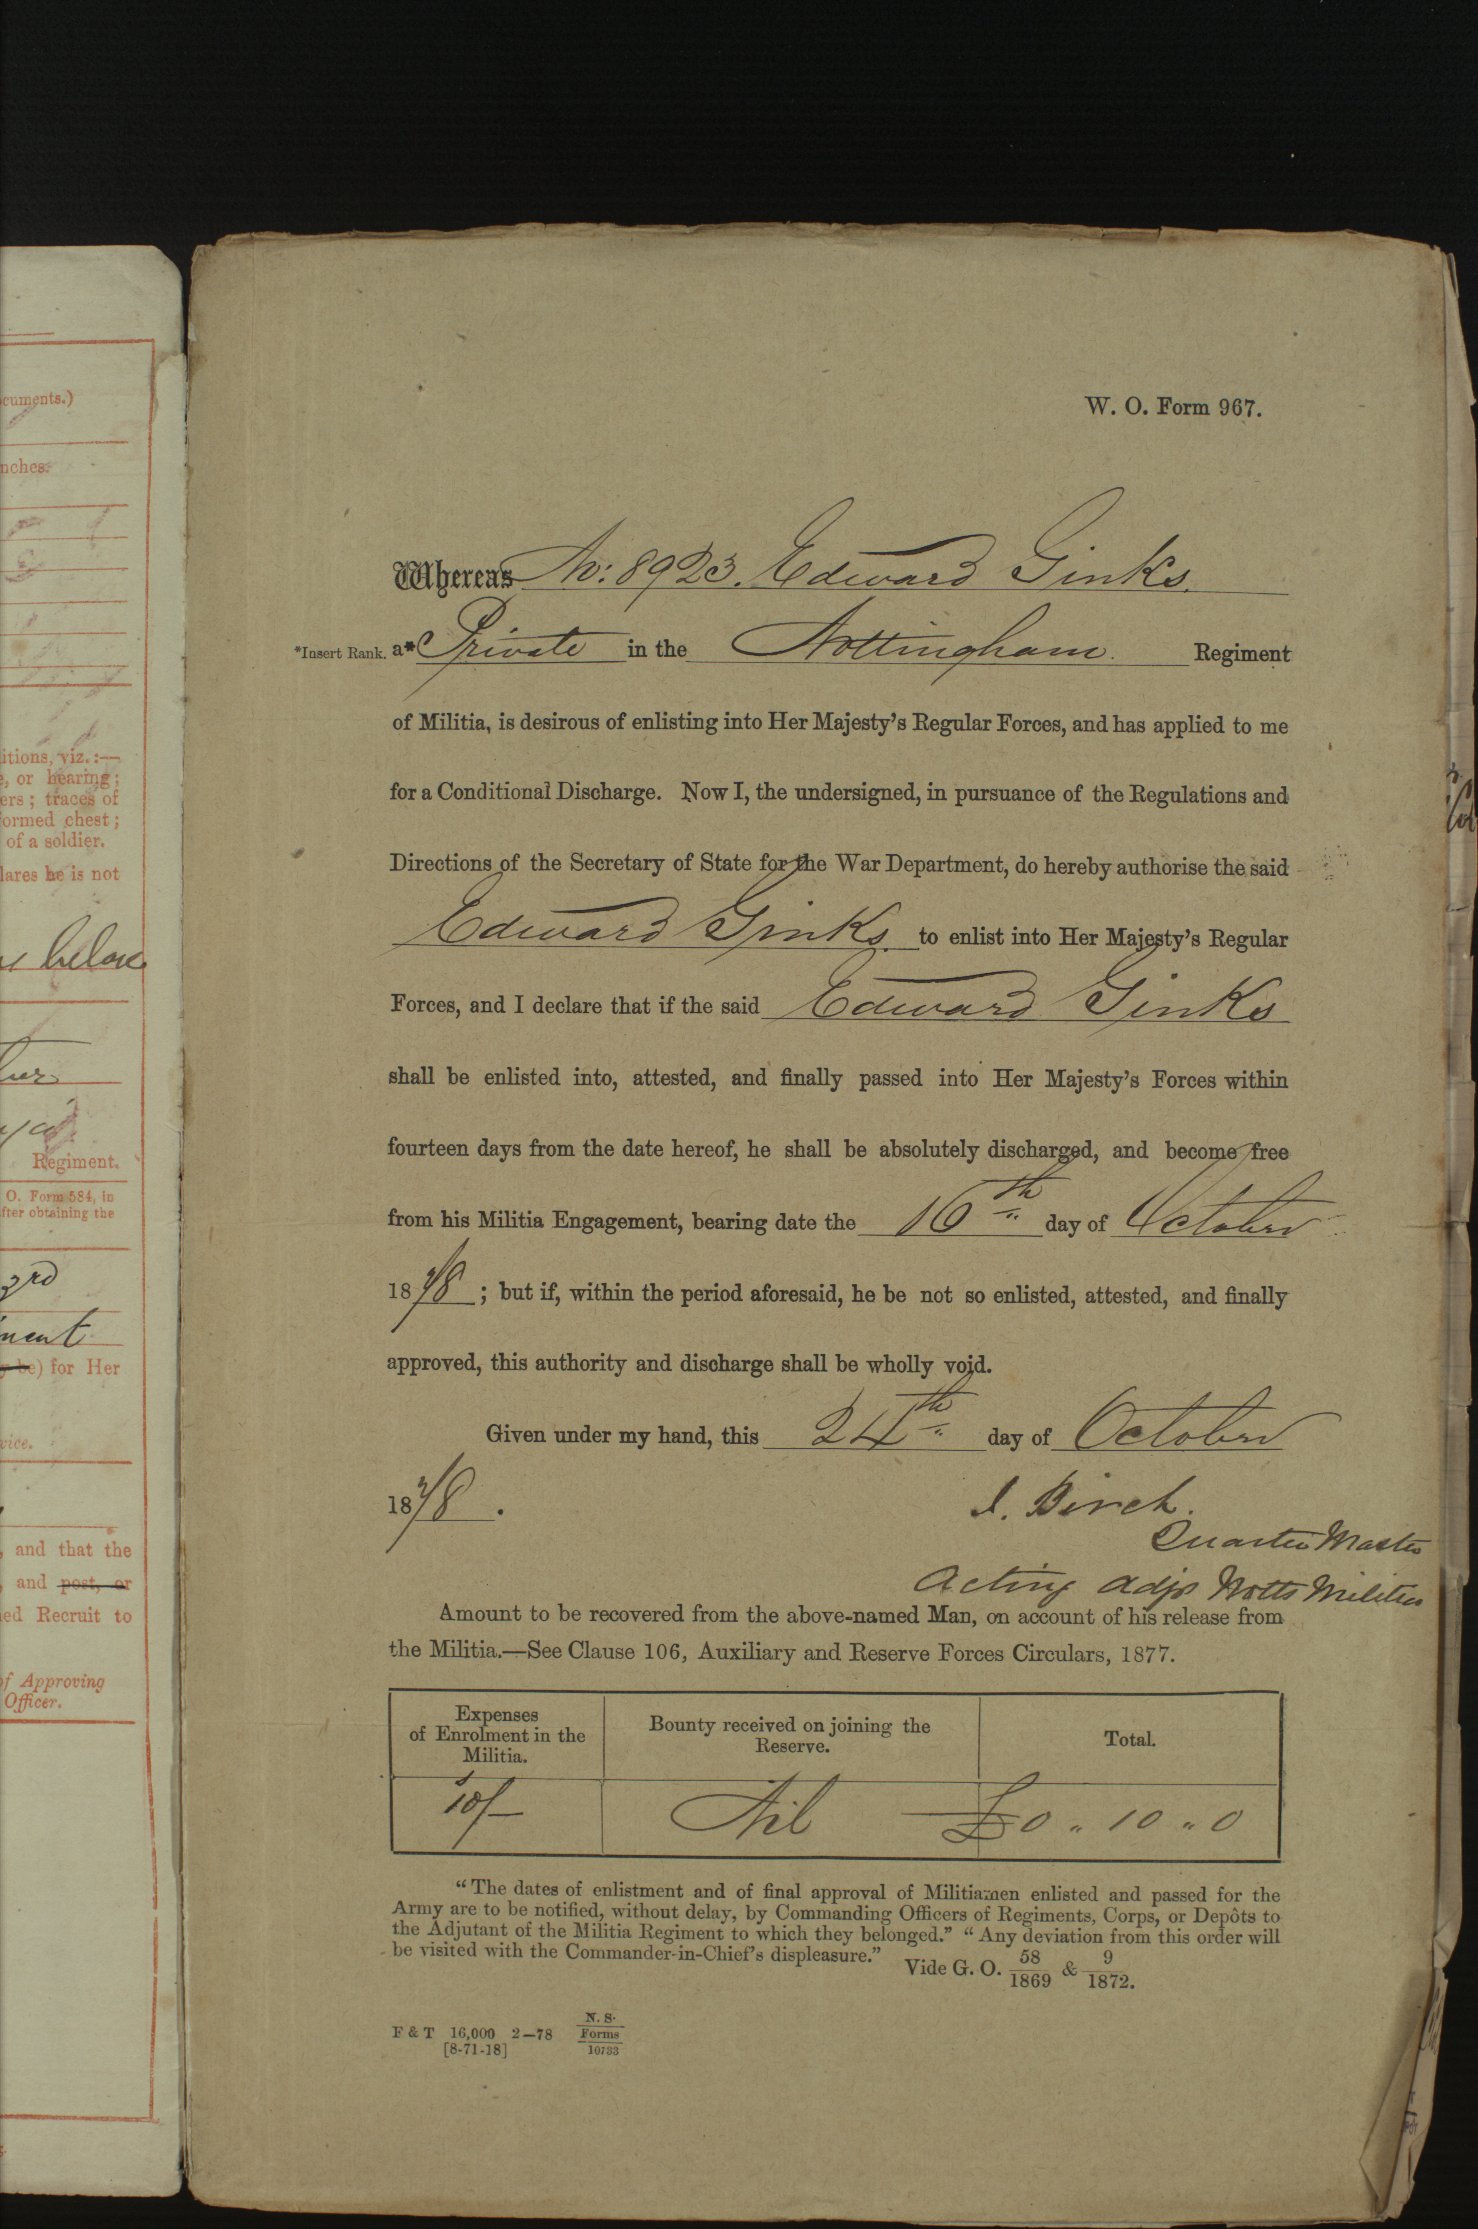 W. O. Form 967.
Whereas No: 8923. Edward Ginks.
*Insert Rank. a* Private in the Nottingham Regiment
of Militia, is desirous of enlisting into Her Majesty's Regular Forces, and has applied to me
for a Conditional Discharge. Now I, the undersigned, in pursuance of the Regulations and
Directions of the Secretary of State for the War Department, do hereby authorise the said
Edward Ginks. to enlist into Her Majesty's Regular
Forces, and I declare that if the said Edward Ginks
shall be enlisted into, attested, and finally passed into Her Majesty's Forces within
fourteen days from the date hereof, he shall be absolutely discharged, and become free
from his Militia Engagement, bearing date the 16th day of October
1878 ; but if, within the period aforesaid, he be not so enlisted, attested, and finally
approved, this authority and discharge shall be wholly void.
Given under my hand, this 24th day of October
1878 .
J. Birch.
Quarter Master
Acting Adjt Notts Militia
Amount to be recovered from the above-named Man, on account of his release from
the Militia.—See Clause 106, Auxiliary and Reserve Forces Circulars, 1877.
Expenses
of Enrolment in the
Militia.
Bounty received on joining the
Reserve.
Total.
10/-
Nil
£0 " 10 " 0
"The dates of enlistment and of final approval of Militiamen enlisted and passed for the
Army are to be notified, without delay, by Commanding Officers of Regiments, Corps, or Depôts to
the Adjutant of the Militia Regiment to which they belonged." "Any deviation from this order will
be visited with the Commander-in-Chief's displeasure." Vide G. O. 58/1869 & 9/1872.
F & T 16,000 2—78 N. S.
Forms
[8-71-18] 10733
ocuments.)
nches.
itions, viz.:—
e, or hearing;
ers; traces of
formed chest;
of a soldier.
lares he is not
below
Regiment.
O. Form 584, in
fter obtaining the
3rd
ment
y be) for Her
vice.
, and that the
, and post, or
ed Recruit to
of Approving
Officer.